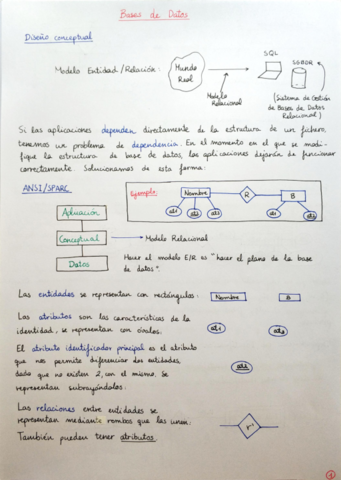 Bases de Datos
Diseño conceptual
SQL
SGBDR
Modelo Entidad/Relación:
Mundo
Real
Modelo
Relacional
(Sistema de Gestión
de Bases de Datos
Relacional)
Si las aplicaciones dependen directamente de la estructura de un fichero
tenemos un problema de dependencia. En el momento en el que se modi-
fique la estructura de base de datos, las aplicaciones dejarán de funcionar
correctamente. Solucionamos de esta forma:
ANSI/SPARC
Ejemplo:
Nombre
R
B
at1
at2
Conceptual
Modelo Relacional
Datos
Hacer el modelo E/R es "hacer el plano de la base
de datos".
Las entidades se representan con rectángulos:
Nombre
B
Los atributos son las características de la
identidad, se representan con óvalos.
at1
at2
El atributo identificador principal es el atributo
que nos permite diferenciar dos entidades,
dado que no existen 2 con el mismo, se
representan subrayándolos:
Las relaciones entre entidades se
representan mediante rombos que las unen:
También pueden tener atributos.